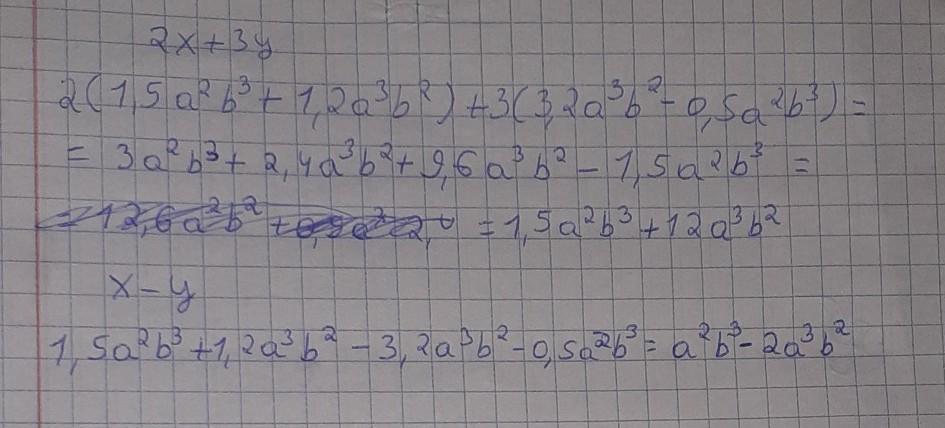 2x+3y
2(1,5a²b³+1,2a³b²)+3(3,2a³b²-0,5a²b³)=
=3a²b³+2,4a³b²+9,6a³b²-1,5a²b³=
=1,5a²b³+12a³b²
x-y
1,5a²b³+1,2a³b²-3,2a³b²-0,5a²b³=a²b³-2a³b²